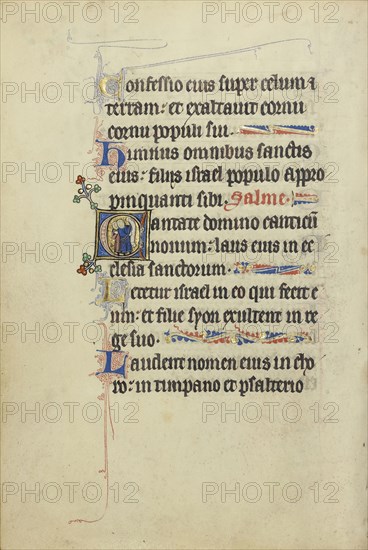 Confessio eius super celum ⁊
terram: et exaltavit cornu
cornu populi sui.
Himnus omnibus sanctis
eius: filiis israel populo appro
pinquanti sibi. Salme.
Cantate domino canticū
nouum: laus eius in ec
clesia sanctorum.
Letetur israel in eo qui fecit e
um: et filie syon exultent in re
ge suo.
Laudent nomen eius in cho
ro: in timpano et psalterio